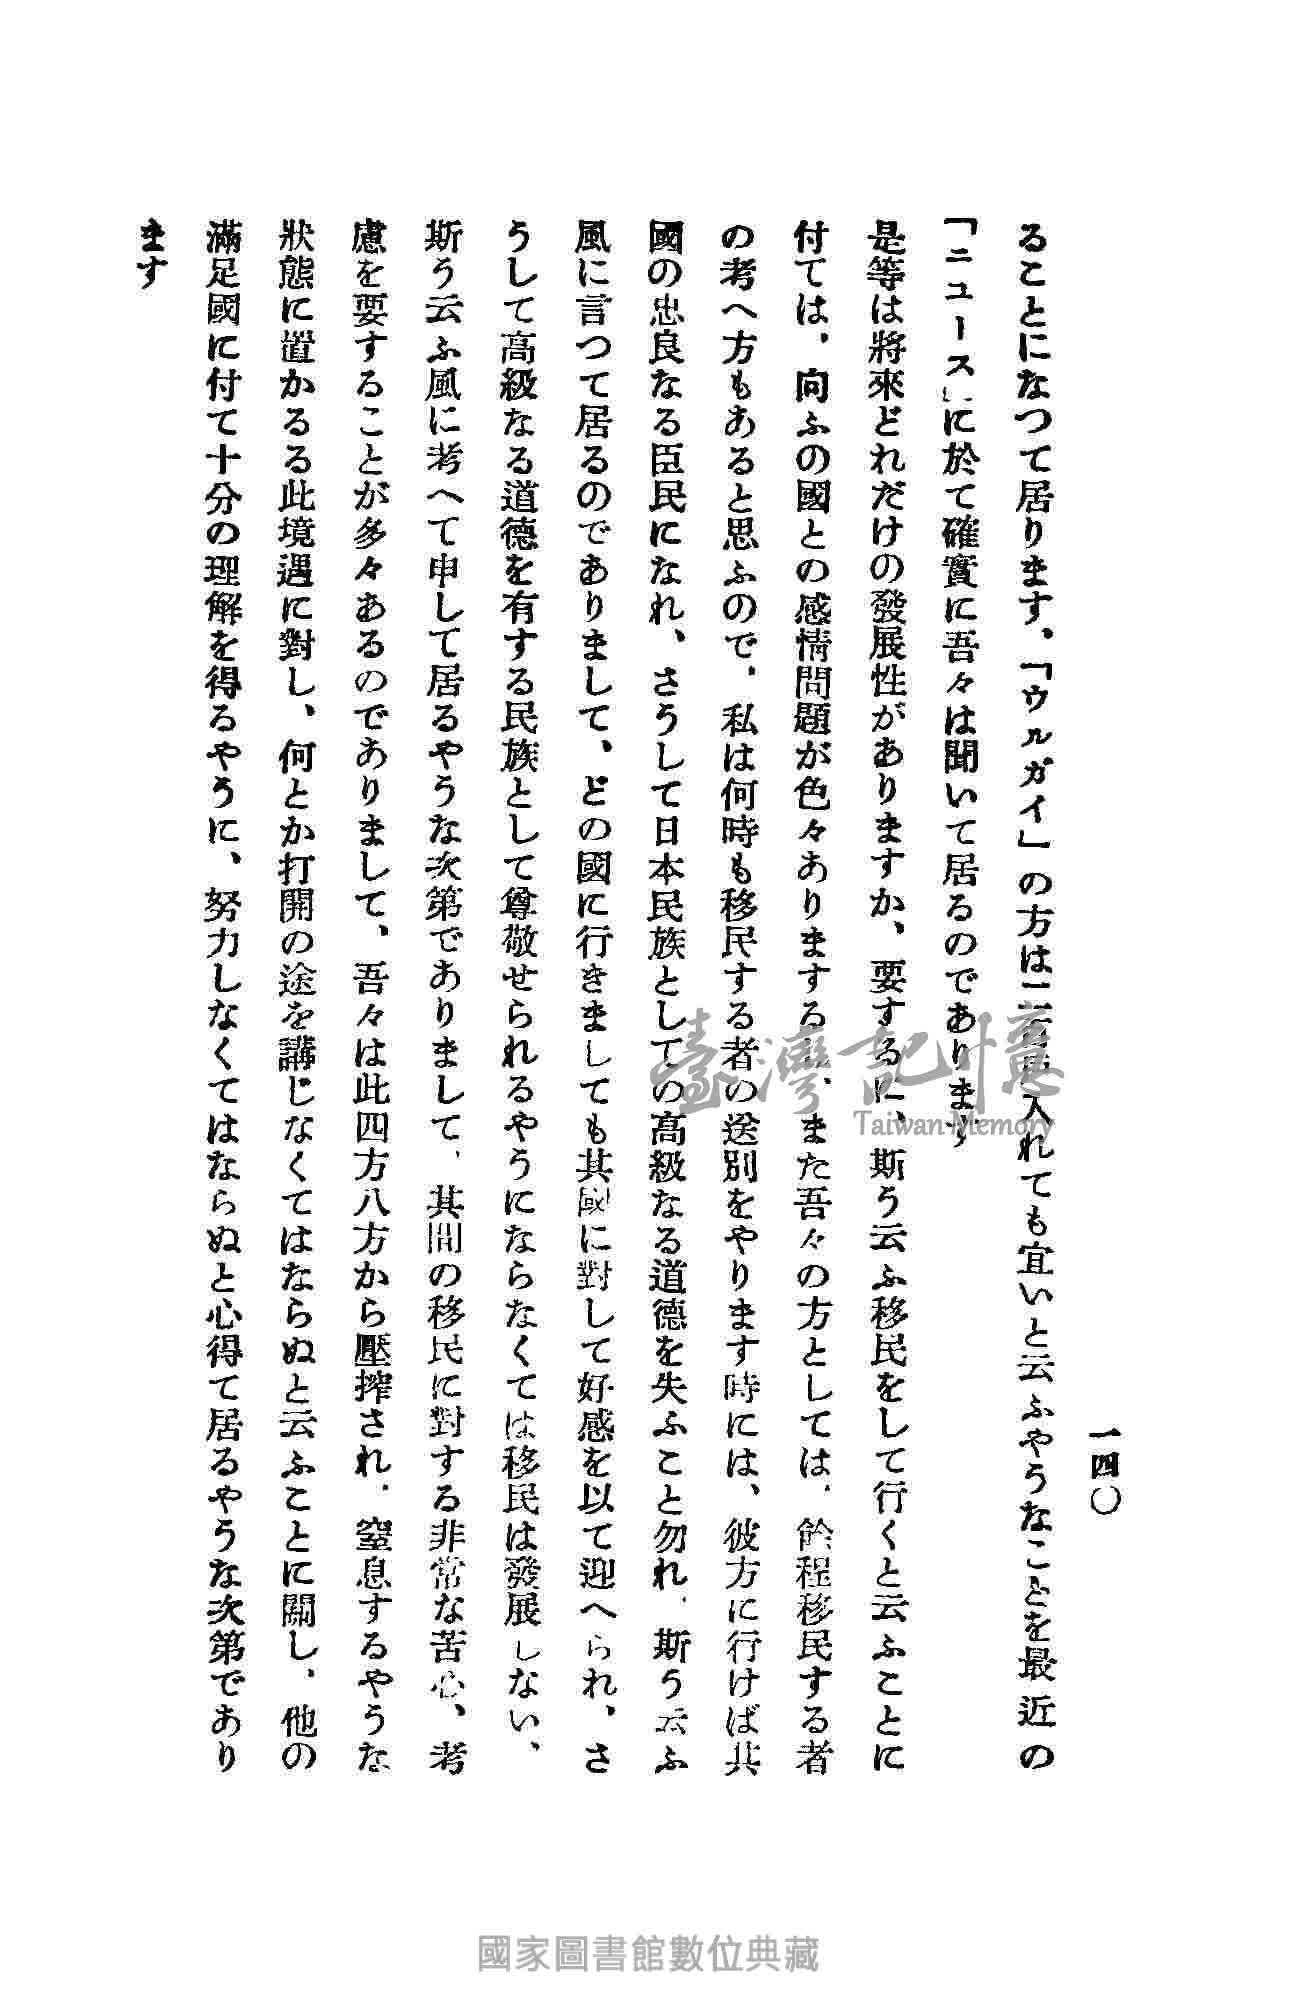 一四〇
ることになつて居ります、「ウルガイ」の方は二 入れても宜いと云ふやうなことを最近の
「ニユース」に於て確實に吾々は聞いて居るのであります
是等は將來どれだけの發展性がありますか、要するに、斯う云ふ移民をして行くと云ふことに
付ては、向ふの國との感情問題が色々ありまする 、また吾々の方としては、餘程移民する者
の考へ方もあると思ふので、私は何時も移民する者の送別をやります時には、彼方に行けば其
國の忠良なる臣民になれ、さうして日本民族としての高級なる道德を失ふこと勿れ、斯う云ふ
風に言つて居るのでありまして、どの國に行きましても其國に對して好感を以て迎へられ、さ
うして高級なる道德を有する民族として尊敬せられるやうにならなくては移民は發展しない、
斯う云ふ風に考へて申して居るやうな次第でありまして、其間の移民に對する非常な苦心、考
慮を要することが多々あるのでありまして、吾々は此四方八方から壓搾され、窒息するやうな
狀態に置かるる此境遇に對し、何とか打開の途を講じなくてはならぬと云ふことに關し、他の
滿足國に付て十分の理解を得るやうに、努力しなくてはならぬと心得て居るやうな次第であり
ます
臺灣記憶
Taiwan Memory
國家圖書館數位典藏